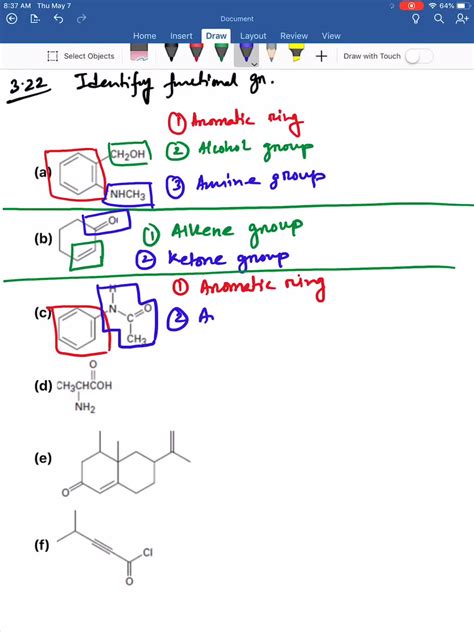 8:37 AM Thu May 7
64%
Document
Home Insert Draw Layout Review View
Select Objects
Draw with Touch
3.22 Identify functional gr.
① Aromatic ring
(a)
CH₂OH
② Alcohol group
NHCH₃
③ Amine group
(b)
O
① Alkene group
② Ketone group
① Aromatic ring
(c)
H
N
C
O
CH₃
② A
O
(d) CH₃CHCOH
NH₂
(e)
O
(f)
Cl
O